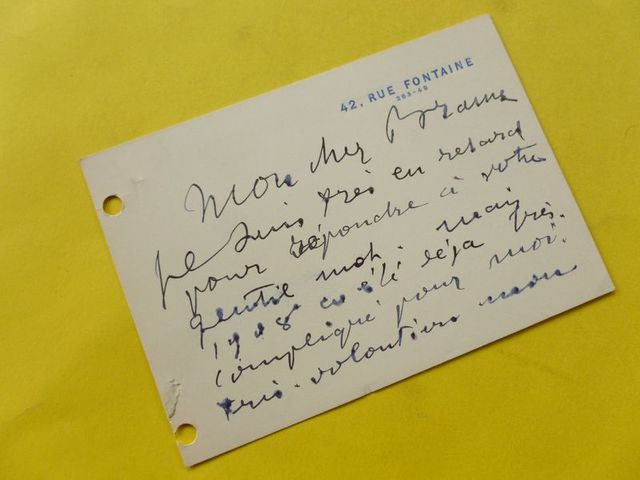 42, RUE FONTAINE
Mon cher
je suis très en retard
pour répondre à votre
gentil mot. mais
déjà très.
compliqué pour moi.
très volontiers mon